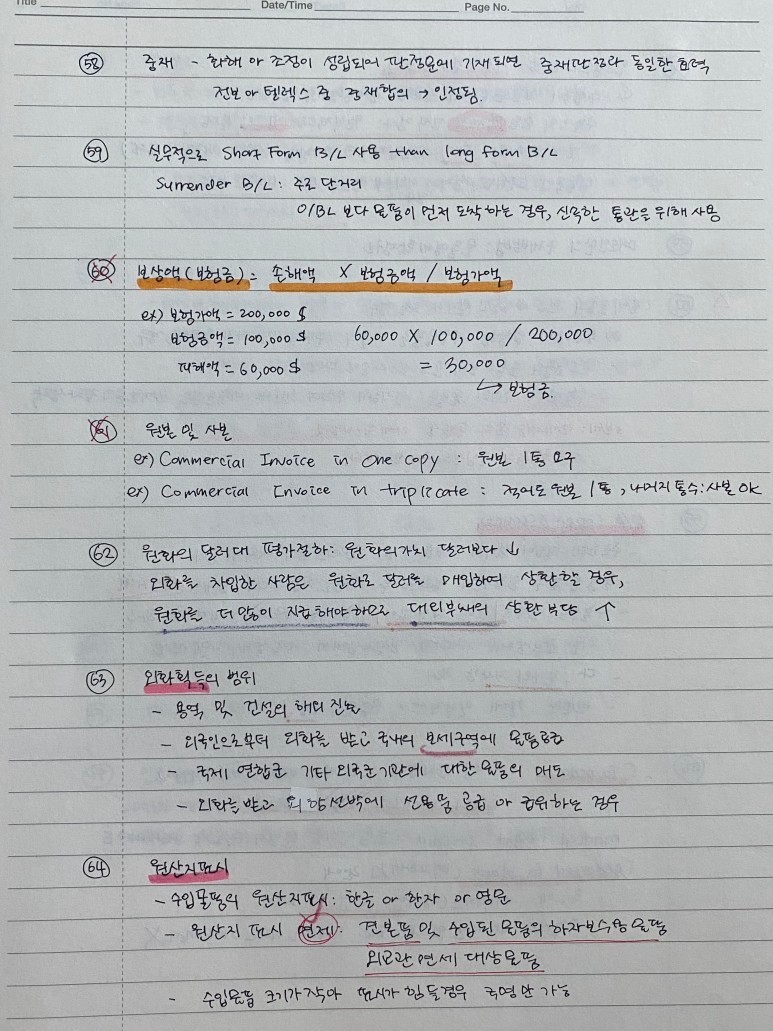 Title
Date/Time
Page No.
58 중재 - 화해 아 조정이 성립되어 판정문에 기재되면 중재판정과 동일한 효력
전보 아 텔렉스 중 중재합의 → 인정됨.
59 실무적으로 Short Form B/L 사용 than long form B/L
Surrender B/L : 주로 단거리
O/BL 보다 물품이 먼저 도착하는 경우, 신속한 통관을 위해 사용
60 보상액(보험금) = 손해액 X 보험금액 / 보험가액
ex) 보험가액 = 200,000 $
보험금액 = 100,000 $ 60,000 X 100,000 / 200,000
피해액 = 60,000 $ = 30,000
↳ 보험금.
61 원본 및 사본
ex) Commercial Invoice in One copy : 원본 1통 요구
ex) Commercial Invoice in triplicate : 적어도 원본 1통, 나머지 통수:사본 OK
62 원화의 달러대 평가절하: 원화의가치 달러보다 ↓
외화를 차입한 사람은 원화로 달러를 매입하여 상환할 경우,
원화를 더 많이 지급해야 하므로 대외부채의 상환 부담 ↑
63 외화획득의 범위
- 용역 및 건설의 해외 진출
- 외국인으로부터 외화를 받고 국내의 보세구역에 물품공급
- 국제 연합군 기타 외국군기관에 대한 물품의 매도
- 외화를 받고 외항선박에 선용품 공급 아 급위하는 경우
64 원산지표시
- 수입물품의 원산지표시: 한글 or 한자 or 영문
- 원산지 표시 면제: 견본품 및 수입된 물품의 하자보수용 물품
외교관 면세 대상물품
- 수입물품 크기가 작아 표시가 힘들경우 국명만 가능